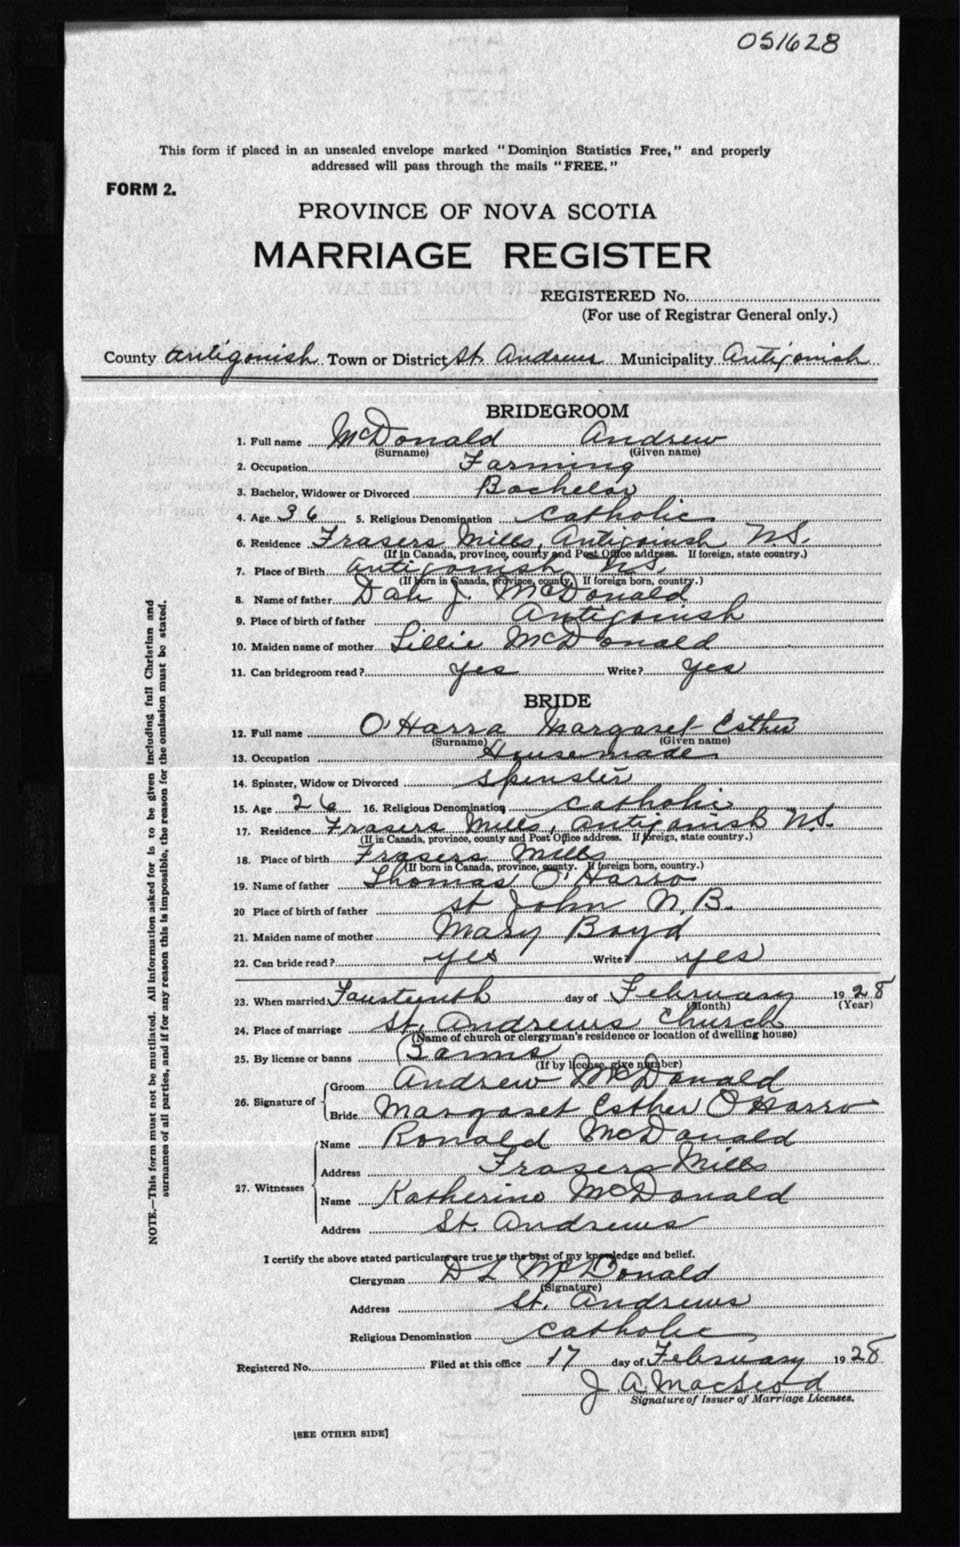 051628
This form if placed in an unsealed envelope marked "Dominion Statistics Free," and properly
addressed will pass through the mails "FREE."
FORM 2.
PROVINCE OF NOVA SCOTIA
MARRIAGE REGISTER
REGISTERED No.
(For use of Registrar General only.)
County Antigonish Town or District St. Andrews Municipality Antigonish
BRIDEGROOM
1. Full name McDonald Andrew
(Surname) (Given name)
2. Occupation Farming
3. Bachelor, Widower or Divorced Bachelor
4. Age 36 5. Religious Denomination Catholic
6. Residence Frasers Mills, Antigonish N.S.
(If in Canada, province, county and Post Office address. If foreign, state country.)
7. Place of Birth Antigonish N.S.
(If born in Canada, province, county. If foreign born, country.)
8. Name of father Dan J. McDonald
9. Place of birth of father Antigonish
10. Maiden name of mother Lillie McDonald
11. Can bridegroom read? yes Write? yes
BRIDE
12. Full name O'Harra Margaret Esther
(Surname) (Given name)
13. Occupation Housemade
14. Spinster, Widow or Divorced Spinster
15. Age 26 16. Religious Denomination Catholic
17. Residence Frasers Mills, Antigonish N.S.
(If in Canada, province, county and Post Office address. If foreign, state country.)
18. Place of birth Frasers Mills
(If born in Canada, province, county. If foreign born, country.)
19. Name of father Thomas O'Harro
20 Place of birth of father St John N.B.
21. Maiden name of mother Mary Boyd
22. Can bride read? yes Write? yes
23. When married day of February 1928
(Month) (Year)
24. Place of marriage St. Andrews Church
(Name of church or clergyman's residence or location of dwelling house)
25. By license or banns
(If by license, give number)
26. Signature of
Groom Andrew McDonald
Bride Margaret Esther O Harro
27. Witnesses
Name Ronald McDonald
Address Frasers Mills
Name Katherine McDonald
Address St. Andrews
I certify the above stated particulars are true to the best of my knowledge and belief.
Clergyman D L McDonald
(Signature)
Address St. Andrews
Religious Denomination Catholic
Registered No. Filed at this office 17 day of February 1928
J. A. MacLeod
Signature of Issuer of Marriage Licenses.
[SEE OTHER SIDE]
NOTE.—This form must not be mutilated. All information asked for is to be given including full Christian and
surnames of all parties, and if for any reason this is impossible, the reason for the omission must be stated.